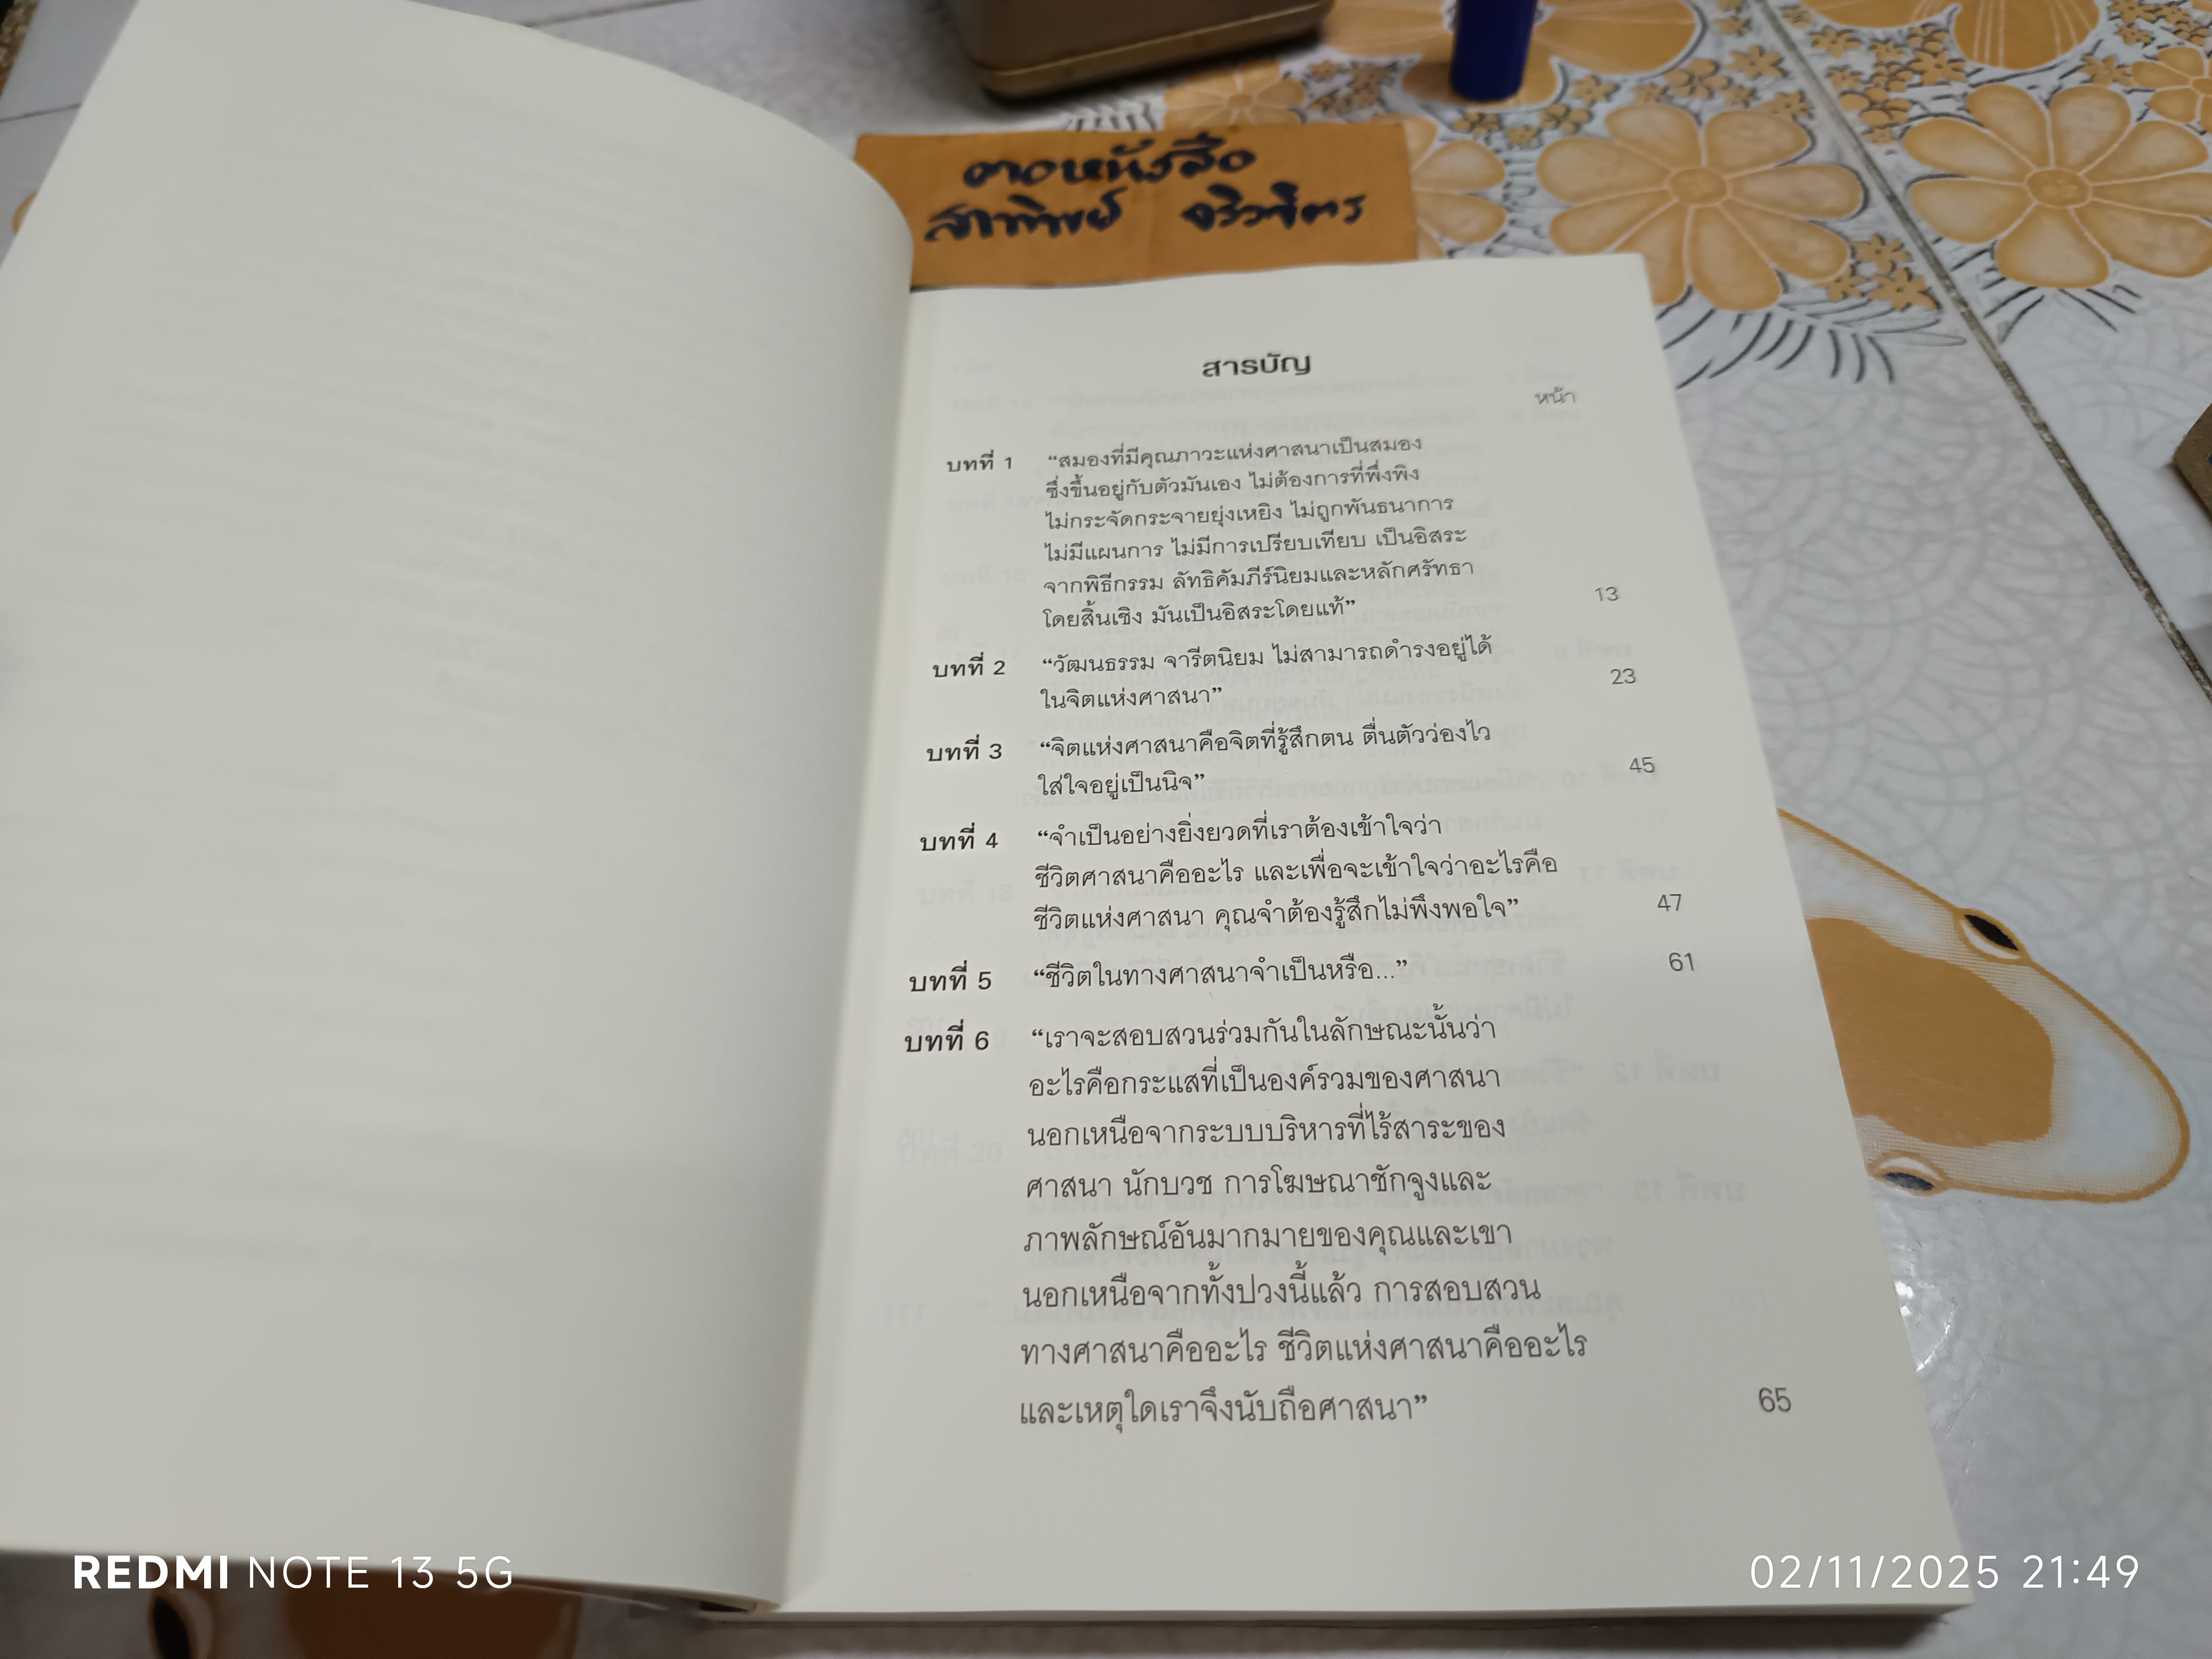 สารบัญ
หน้า
บทที่ 1 “สมองที่มีคุณภาวะแห่งศาสนาเป็นสมอง
ซึ่งขึ้นอยู่กับตัวมันเอง ไม่ต้องการที่พึ่งพิง
ไม่กระจัดกระจายยุ่งเหยิง ไม่ถูกพันธนาการ
ไม่มีแผนการ ไม่มีการเปรียบเทียบ เป็นอิสระ
จากพิธีกรรม ลัทธิคัมภีร์นิยมและหลักศรัทธา
โดยสิ้นเชิง มันเป็นอิสระโดยแท้” 13
บทที่ 2 “วัฒนธรรม จารีตนิยม ไม่สามารถดำรงอยู่ได้
ในจิตแห่งศาสนา” 23
บทที่ 3 “จิตแห่งศาสนาคือจิตที่รู้สึกตน ตื่นตัวว่องไว
ใส่ใจอยู่เป็นนิจ” 45
บทที่ 4 “จำเป็นอย่างยิ่งยวดที่เราต้องเข้าใจว่า
ชีวิตศาสนาคืออะไร และเพื่อจะเข้าใจว่าอะไรคือ
ชีวิตแห่งศาสนา คุณจำต้องรู้สึกไม่พึงพอใจ” 47
บทที่ 5 “ชีวิตในทางศาสนาจำเป็นหรือ...” 61
บทที่ 6 “เราจะสอบสวนร่วมกันในลักษณะนั้นว่า
อะไรคือกระแสที่เป็นองค์รวมของศาสนา
นอกเหนือจากระบบบริหารที่ไร้สาระของ
ศาสนา นักบวช การโฆษณาชักจูงและ
ภาพลักษณ์อันมากมายของคุณและเขา
นอกเหนือจากทั้งปวงนี้แล้ว การสอบสวน
ทางศาสนาคืออะไร ชีวิตแห่งศาสนาคืออะไร
และเหตุใดเราจึงนับถือศาสนา” 65
REDMI NOTE 13 5G
02/11/2025 21:49